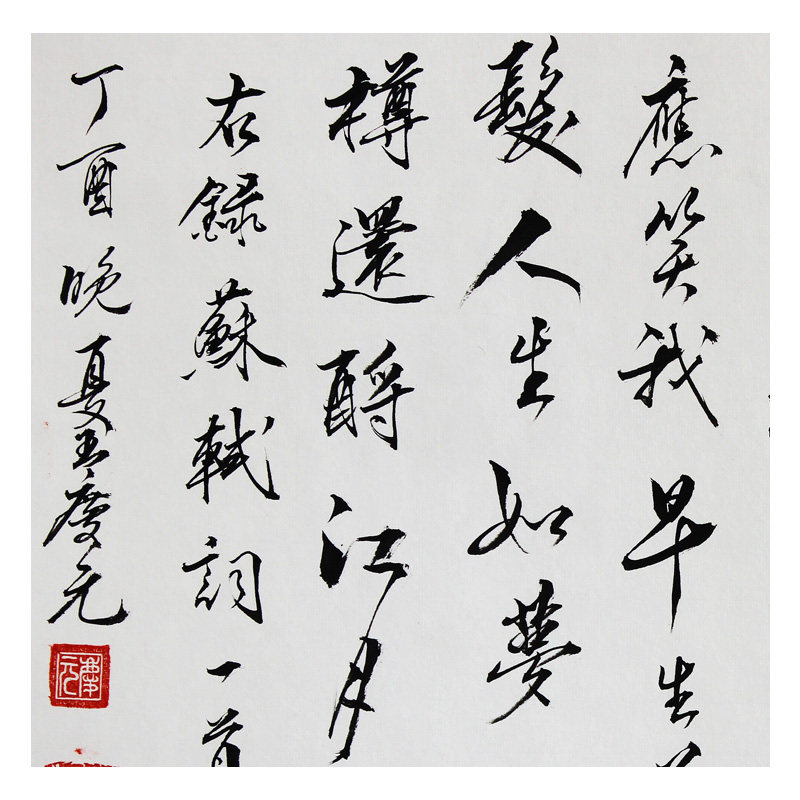 應笑我早生
髮人生如夢
樽還酹江月
右錄蘇軾詞一首
丁酉晚夏王慶元
慶元